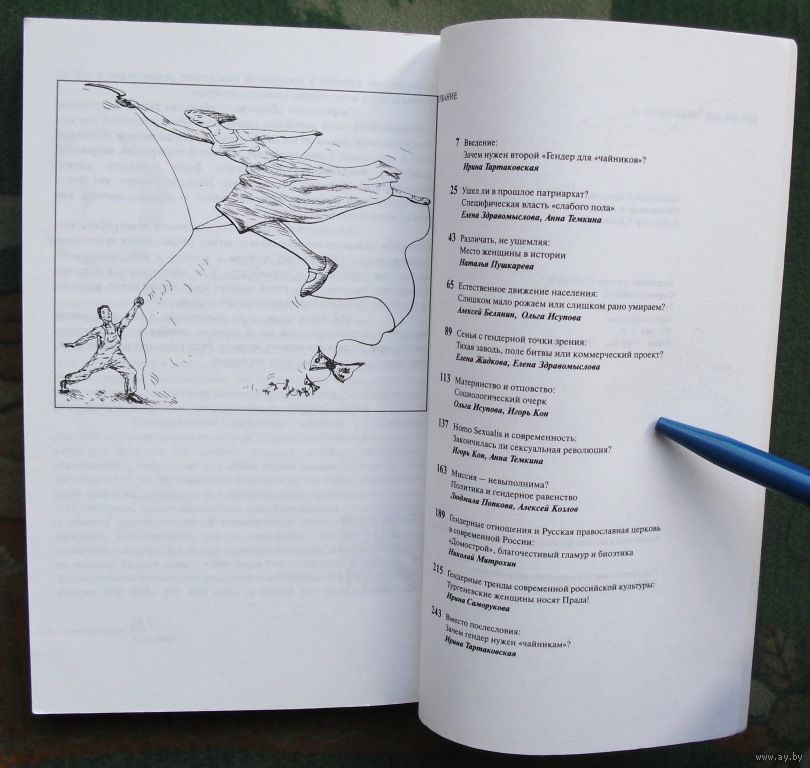 7 Введение:
Зачем нужен второй «Гендер для «чайников»?
Ирина Тартаковская
25 Ушел ли в прошлое патриархат?
Специфическая власть «слабого пола»
Елена Здравомыслова, Анна Темкина
43 Различать, не ущемляя:
Место женщины в истории
Наталья Пушкарева
65 Естественное движение населения:
Слишком мало рожаем или слишком рано умираем?
Алексей Белянин, Ольга Исупова
89 Семья с гендерной точки зрения:
Тихая заводь, поле битвы или коммерческий проект?
Елена Жидкова, Елена Здравомыслова
113 Материнство и отцовство:
Социологический очерк
Ольга Исупова, Игорь Кон
137 Homo Sexualis и современность:
Закончилась ли сексуальная революция?
Игорь Кон, Анна Темкина
163 Миссия — невыполнима?
Политика и гендерное равенство
Людмила Попкова, Алексей Козлов
189 Гендерные отношения и Русская православная церковь
в современной России:
«Домострой», благочестивый гламур и биоэтика
Николай Митрохин
215 Гендерные тренды современной российской культуры:
Тургеневские женщины носят Прада!
Ирина Саморукова
243 Вместо послесловия:
Зачем гендер нужен «чайникам»?
Ирина Тартаковская
www.ay.by